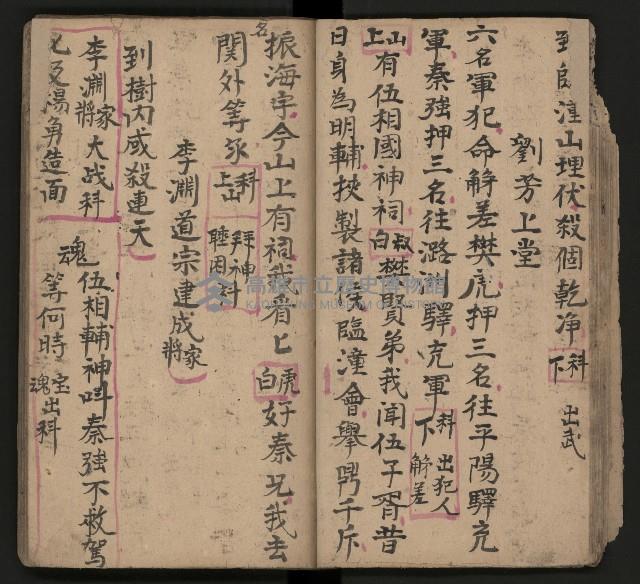 到臨潼山埋伏殺個乾净 科下 出武
劉芳上堂
六名軍犯命解差樊虎押三名往平陽驛充
軍秦強押三名往潞州驛充軍 科下 出犯人解差
山上有伍相國神祠 叔白 樊賢弟我闻伍子胥昔
日身為明輔挾製諸侯臨潼會舉鼎千斤
名振海宇今山上有祠我看匕 虎白 好秦兄我去
関外等你 科山上 拜神科 睡困
李淵道宗建成 家将
到樹内咸殺連天
李淵 家将 大战科
反湯角造面
魂 伍相輔神呌秦強不救駕
等何時 宝魂出科
高雄市立歷史博物館
KAOHSIUNG MUSEUM OF HISTORY